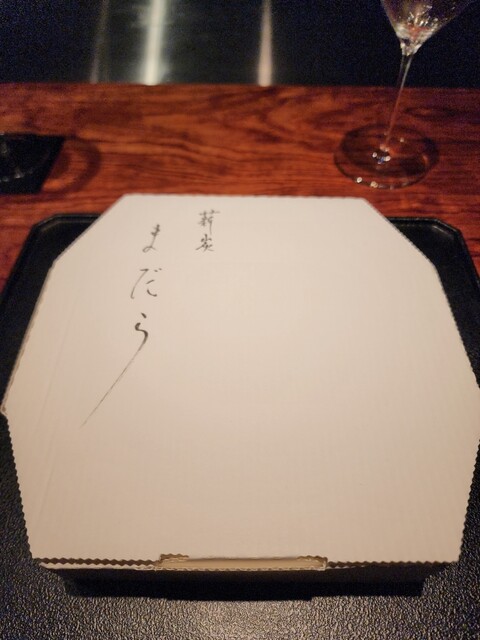 薪炭
まだら